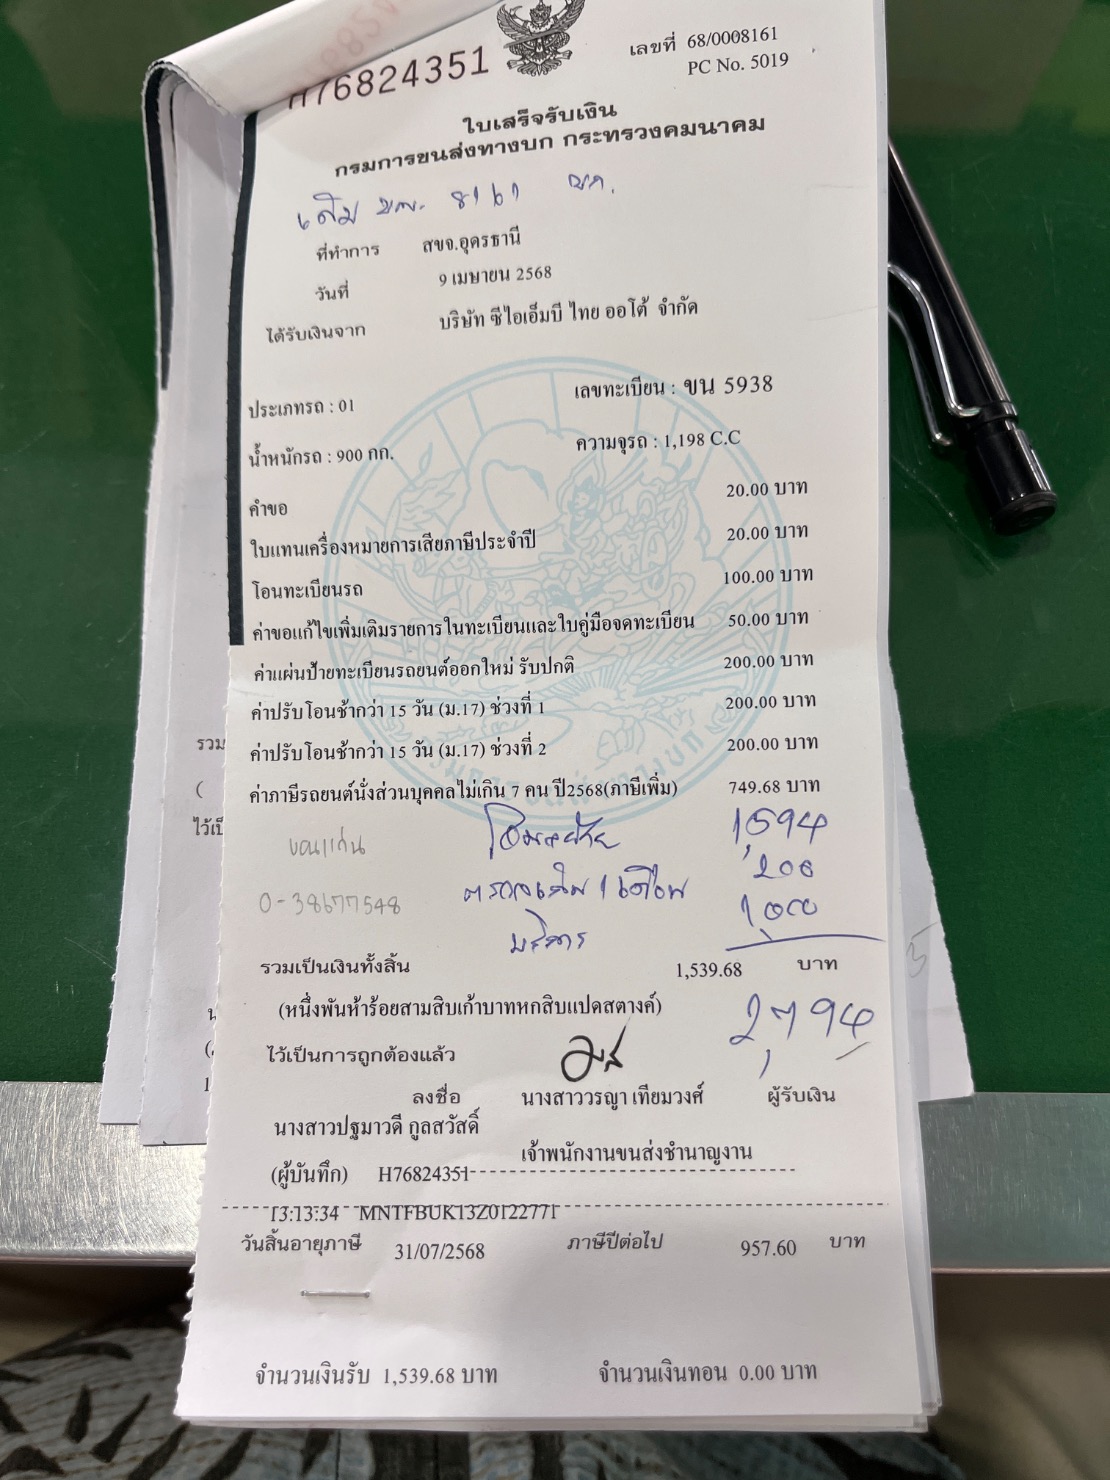 H76824351
เลขที่ 68/0008161
PC No. 5019
ใบเสร็จรับเงิน
กรมการขนส่งทางบก กระทรวงคมนาคม
เดิม 8161 ขก.
ที่ทำการ สขจ.อุดรธานี
วันที่ 9 เมษายน 2568
ได้รับเงินจาก บริษัท ซีไอเอ็มบี ไทย ออโต้ จำกัด
ประเภทรถ : 01 เลขทะเบียน : ขน 5938
น้ำหนักรถ : 900 กก. ความจุรถ : 1,198 C.C
คำขอ 20.00 บาท
ใบแทนเครื่องหมายการเสียภาษีประจำปี 20.00 บาท
โอนทะเบียนรถ 100.00 บาท
ค่าขอแก้ไขเพิ่มเติมรายการในทะเบียนและใบคู่มือจดทะเบียน 50.00 บาท
ค่าแผ่นป้ายทะเบียนรถยนต์ออกใหม่ รับปกติ 200.00 บาท
ค่าปรับโอนช้ากว่า 15 วัน (ม.17) ช่วงที่ 1 200.00 บาท
ค่าปรับโอนช้ากว่า 15 วัน (ม.17) ช่วงที่ 2 200.00 บาท
ค่าภาษีรถยนต์นั่งส่วนบุคคลไม่เกิน 7 คน ปี2568(ภาษีเพิ่ม) 749.68 บาท
ขอนแก่น 1,594
200
0-38677548 1,000
บริการ
รวมเป็นเงินทั้งสิ้น 1,539.68 บาท
(หนึ่งพันห้าร้อยสามสิบเก้าบาทหกสิบแปดสตางค์)
2,794
ไว้เป็นการถูกต้องแล้ว
ลงชื่อ นางสาววรญา เทียมวงศ์ ผู้รับเงิน
นางสาวปฐมาวดี กูลสวัสดิ์
เจ้าพนักงานขนส่งชำนาญงาน
(ผู้บันทึก) H76824351
13:13:34 MNTFBUK13Z0122771
วันสิ้นอายุภาษี 31/07/2568 ภาษีปีต่อไป 957.60 บาท
จำนวนเงินรับ 1,539.68 บาท จำนวนเงินทอน 0.00 บาท